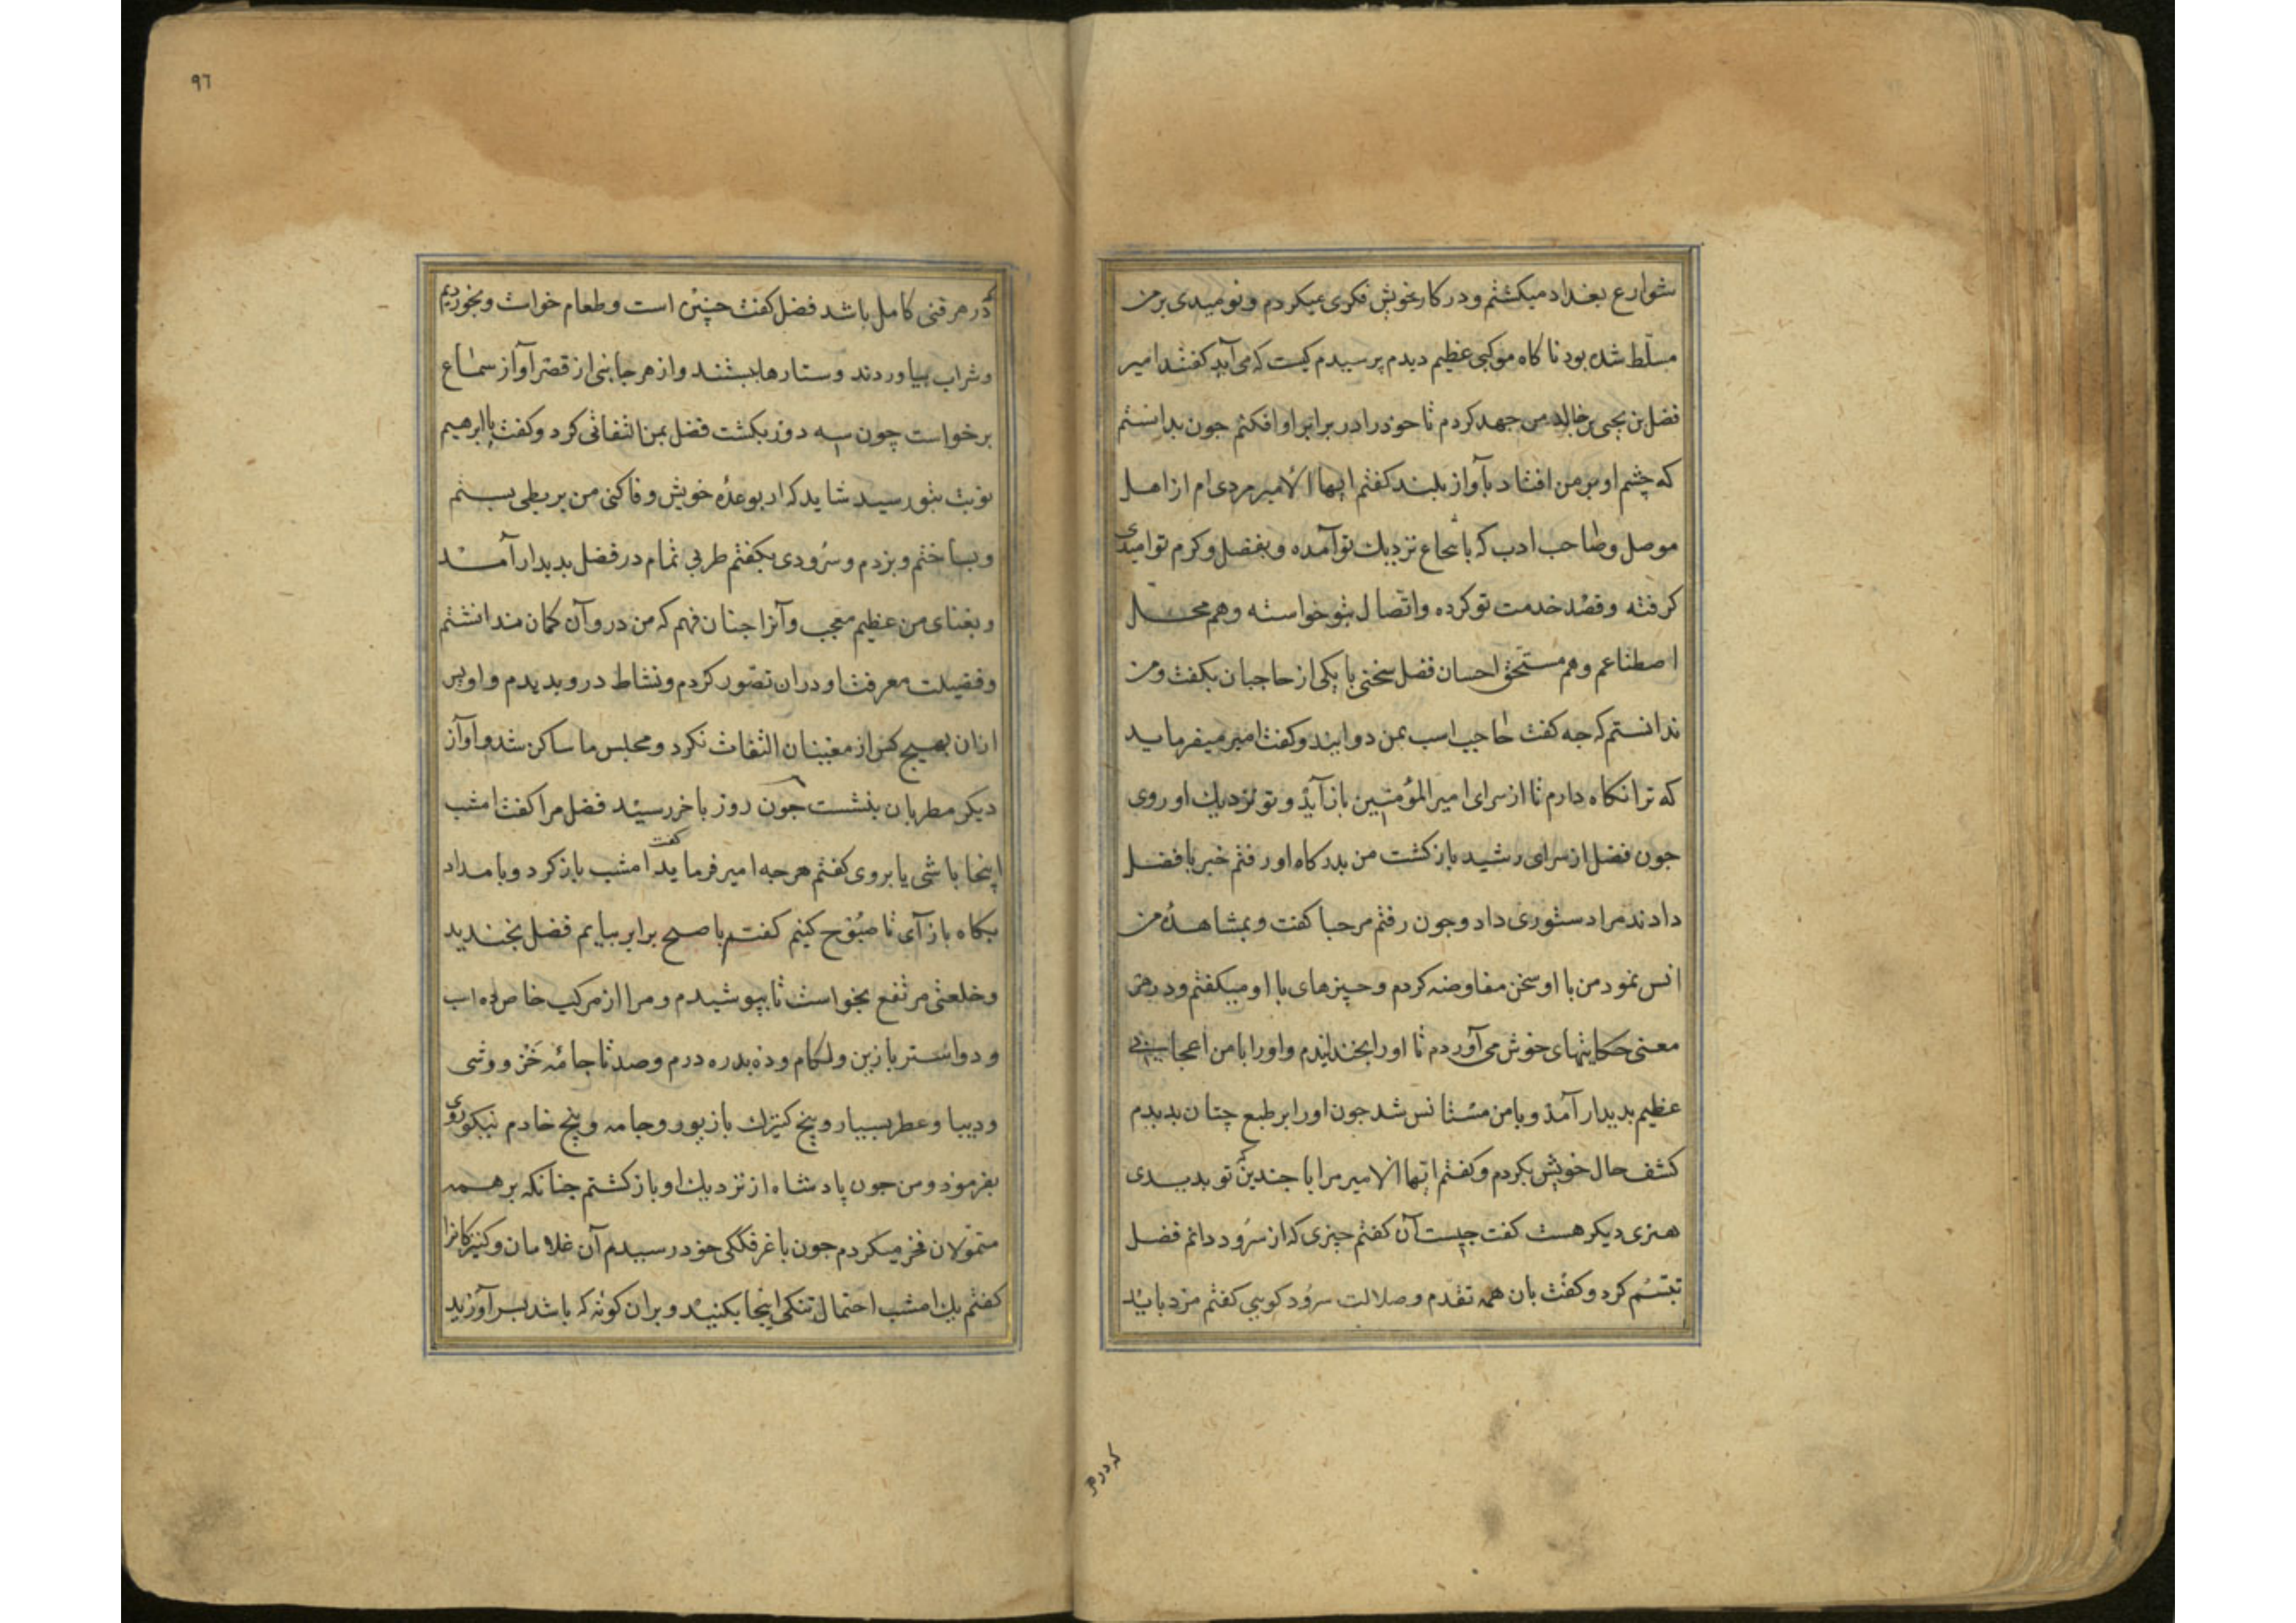 شوارع بغداد میکشتم و در کار خویش فکری میکردم و نومیدی بر من
مسلّط شده بود ناکاه موکبی عظیم دیدم پرسیدم کیست که می آید کفتند امیر
فضل بن یحیی بن خالد من جهد کردم تا خود را در برابر او افکنم جون بدانستم
که چشم او بر من افتاد بآواز بلند کفتم ایها الامیر مردی ام از اهل
موصل وصاحب ادب که بانتجاع نزدیك تو آمده و بفضل و کرم تو امیدی
کرفته و قصد خدمت تو کرده و اتّصال بتو خواسته و هم محل
اصطناعم و هم مستحق احسان فضل سخنی با یکی از حاجبان بکفت و من
ندانستم که جه کفت حاجب اسب بمن دوانید و کفت امیر میفرماید
که ترا نکاه دارم تا از سرای امیر المؤمنین باز آیذ و تو نزدیك او روی
جون فضل از سرای رشید باز کشت من بدرکاه او رفتم خبر با فضل
دادند مرا دستوری داد و جون رفتم مرحبا کفت و بمشاهدهٔ من
انس نمود من با او سخن مفاوضه کردم و چیزهای با او میکفتم و در هر
معنی حکایتهای خوش می آوردم تا او را بخندانیدم و او را با من اعجابی
عظیم بدیدار آمذ و با من مستانس شد جون او را بر طبع چنان بدیدم
کشف حال خویش بکردم و کفتم ایّها الامیر مرا با جندین که تو بدیدی
هنری دیکر هست کفت چیست آن کفتم چیزی که از سرُود دانم فضل
تبسّم کرد و کفت بان همه تقدم و صلالت سرُود کویی کفتم مرد باید
که در هر
٩٦
که در هر فنی کامل باشد فضل کفت چنین است و طعام خواست و بخوردیم
و شراب بیاوردند و ستارها ببستند و از هر جانبی از قصر آواز سماع
برخواست چون سه دور بکشت فضل بمن التفاتی کرد و کفت یا ابرهیم
نوبت بتو رسید شاید که از بوعدهٔ خویش وفا کنی من بربطی بستم
و بساختم و بزدم و سرُودی بکفتم طربی تمام در فضل بدیدار آمد
و بغنای من عظیم متعجب و آنرا جنان فهم که من در و آن کمان نمدانستم
و فضیلت معرفت او دران تصّور کردم و نشاط در و بدیدم و او بس
ازان بهیچ کس از مغنیان التفات نکرد و مجلس ما ساکن شد و آواز
دیکر مطربان بنشست جون روز باخر رسید فضل مرا کفت امشب
اینجا باشی یا بروی کفتم هر جه امیر فرماید کفت امشب باز کرد و بامداد
بکاه باز آی تا صبُوح کنیم کفتم با صبح برابر بیایم فضل بخندید
و خلعتی مرتفع بخواست تا بپوشیدم و مرا از مرکب خاص ده اسب
و دو استر با زین و لکام و ده بدره درم و صد تا جامهٔ خَز و وشی
و دیبا و عطر بسیار و پنج کنیزك با زیور و جامه و پنج خادم نیکو روی
بفرمود و من جون پادشاه از نزدیك او باز کشتم جنانکه بر همه
متمولان فخر میکردم جون با غرفککی خود رسیدم آن غلامان و کنیزکانرا
کفتم یك امشب احتمال تنکی اینجا بکنید و بران کونه که باشد بسر آورید